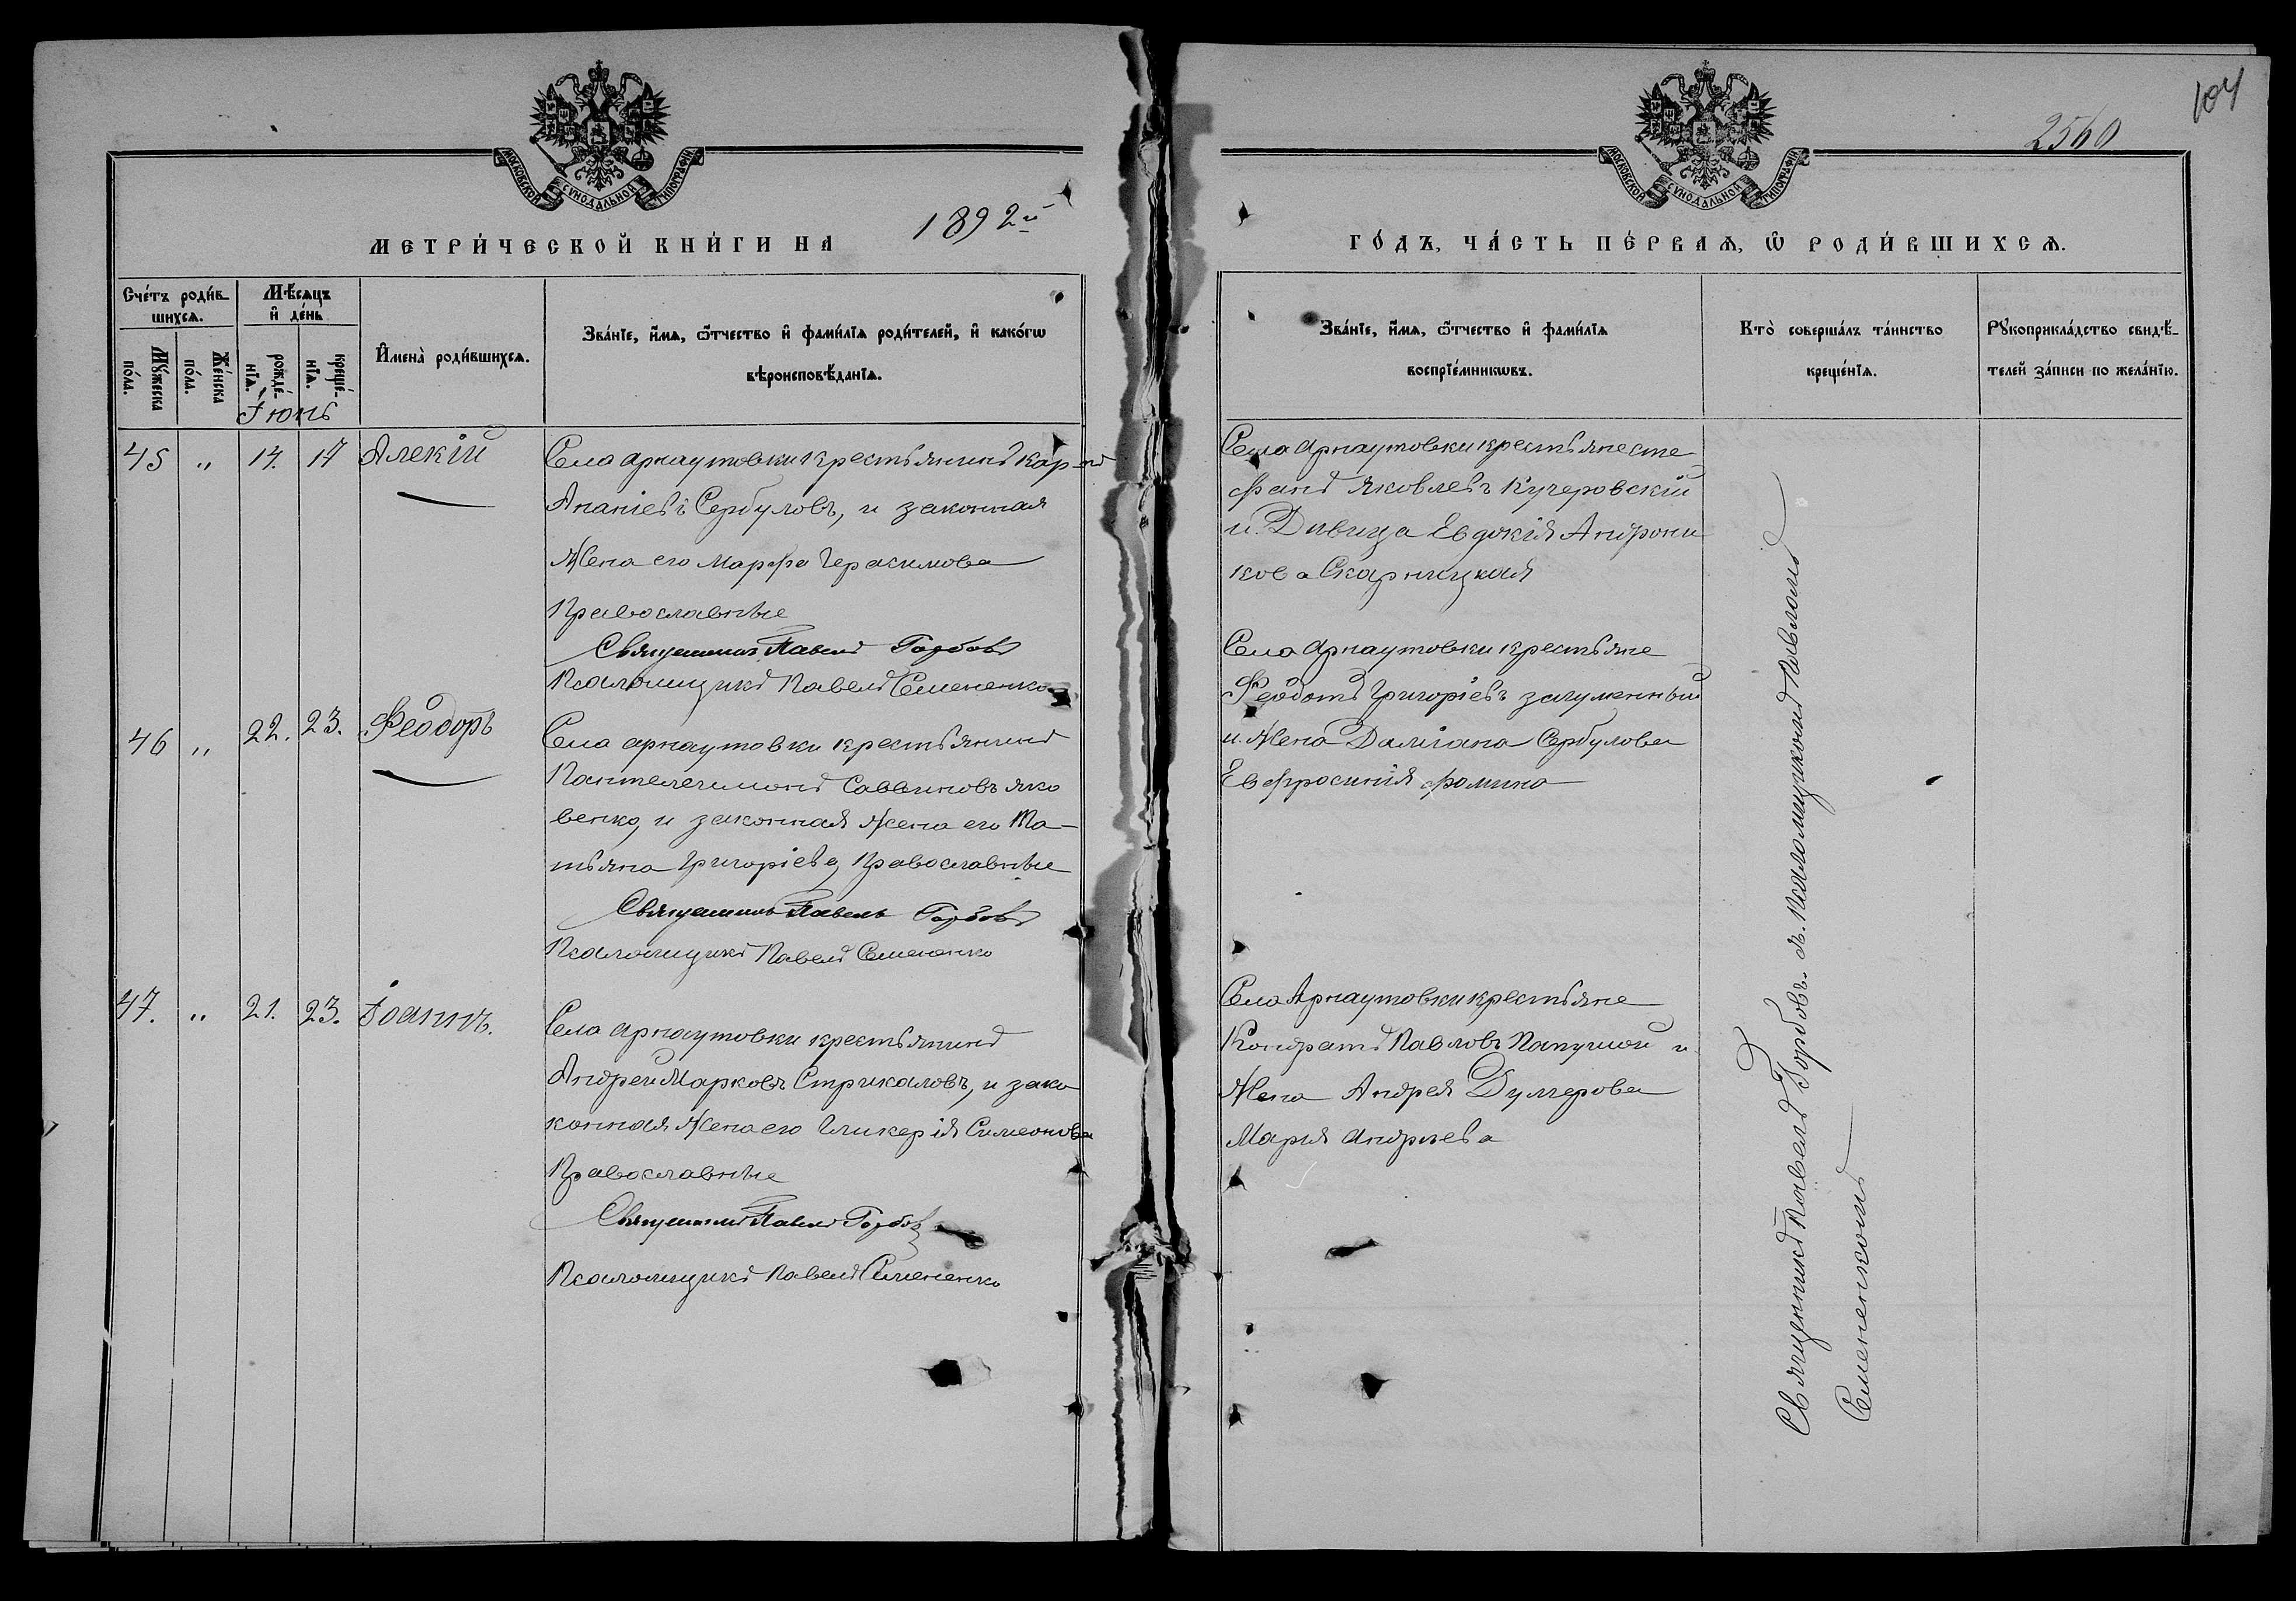 104
2560
МОСКОВСКОЙ СѴНОДАЛЬНОЙ ТИПОГРАФІИ
МОСКОВСКОЙ СѴНОДАЛЬНОЙ ТИПОГРАФІИ
МЕТРИ́ЧЕСКОЙ КНИ́ГИ НА 1892й
ГО́ДЪ, ЧА́СТЬ ПЕ́РВАѦ, Ѡ РОДИ́ВШИХСѦ.
Счéтъ роди́в-
шихсѧ.
Мꙋ́жеска по́ла.
Же́нска по́ла.
Мѣ́сѧцъ
и҆ де́нь
рожде́-нїѧ.
креще́-нїѧ.
И҆мена̀ роди́вшихсѧ.
Зва́нїе, и҆́мѧ, ѻ҆́тчество и҆ фами́лїѧ роди́телей, и҆ како́гѡ
вѣроисповѣ́данїѧ.
Зва́нїе, и҆́мѧ, ѻ҆́тчество и҆ фами́лїѧ
воспрїе́мникѡвъ.
Кто̀ соверша́лъ та́инство
креще́нїѧ.
Рꙋкоприкла́дство свидѣ́-
телей за́писи по жела́нїю.
Іюнь
45 " 14. 17 Алекій
Села Арнаутовки крестьянинъ Кар-пъ
Ананіевъ Сербуловъ, и законная
Жена его Марфа Герасимова
Православные
Священникъ Павелъ Горбовъ
Псаломщикъ Павелъ Семененко
Села Арнаутовки крестьяне Сте
фанъ Яковлевъ Кучеровскій
и Дивица Евдокія Андрони
кова Скарницкая
46 " 22. 23. Феодоръ
Села Арнаутовки крестьянинъ
Пантелеимонъ Саввиновъ Яко
венко, и законная Жена его Та-
тьяна Григоріева, Православные
Священникъ Павелъ Горбовъ
Псаломщикъ Павелъ Семененко
Села Арнаутовки крестьяне
Феодотъ Григоріевъ Загуменный
и Жена Даміана Сербулова
Евфросинія Фомина
47. " 21. 23. Іоаннъ.
Села Арнаутовки крестьянинъ
Андрей Марковъ Стрикаловъ, и зако
конная Жена его Гликерія Симеонова
Православные
Священникъ Павелъ Горбовъ
Псаломщикъ Павелъ Семененко
Села Арнаутовки крестьяне
Кондратъ Павловъ Папушой и
Жена Андрея Думгерова
Марія Андріева
Священникъ Павелъ Горбовъ съ Псаломщикомъ Павломъ
Семененкомъ